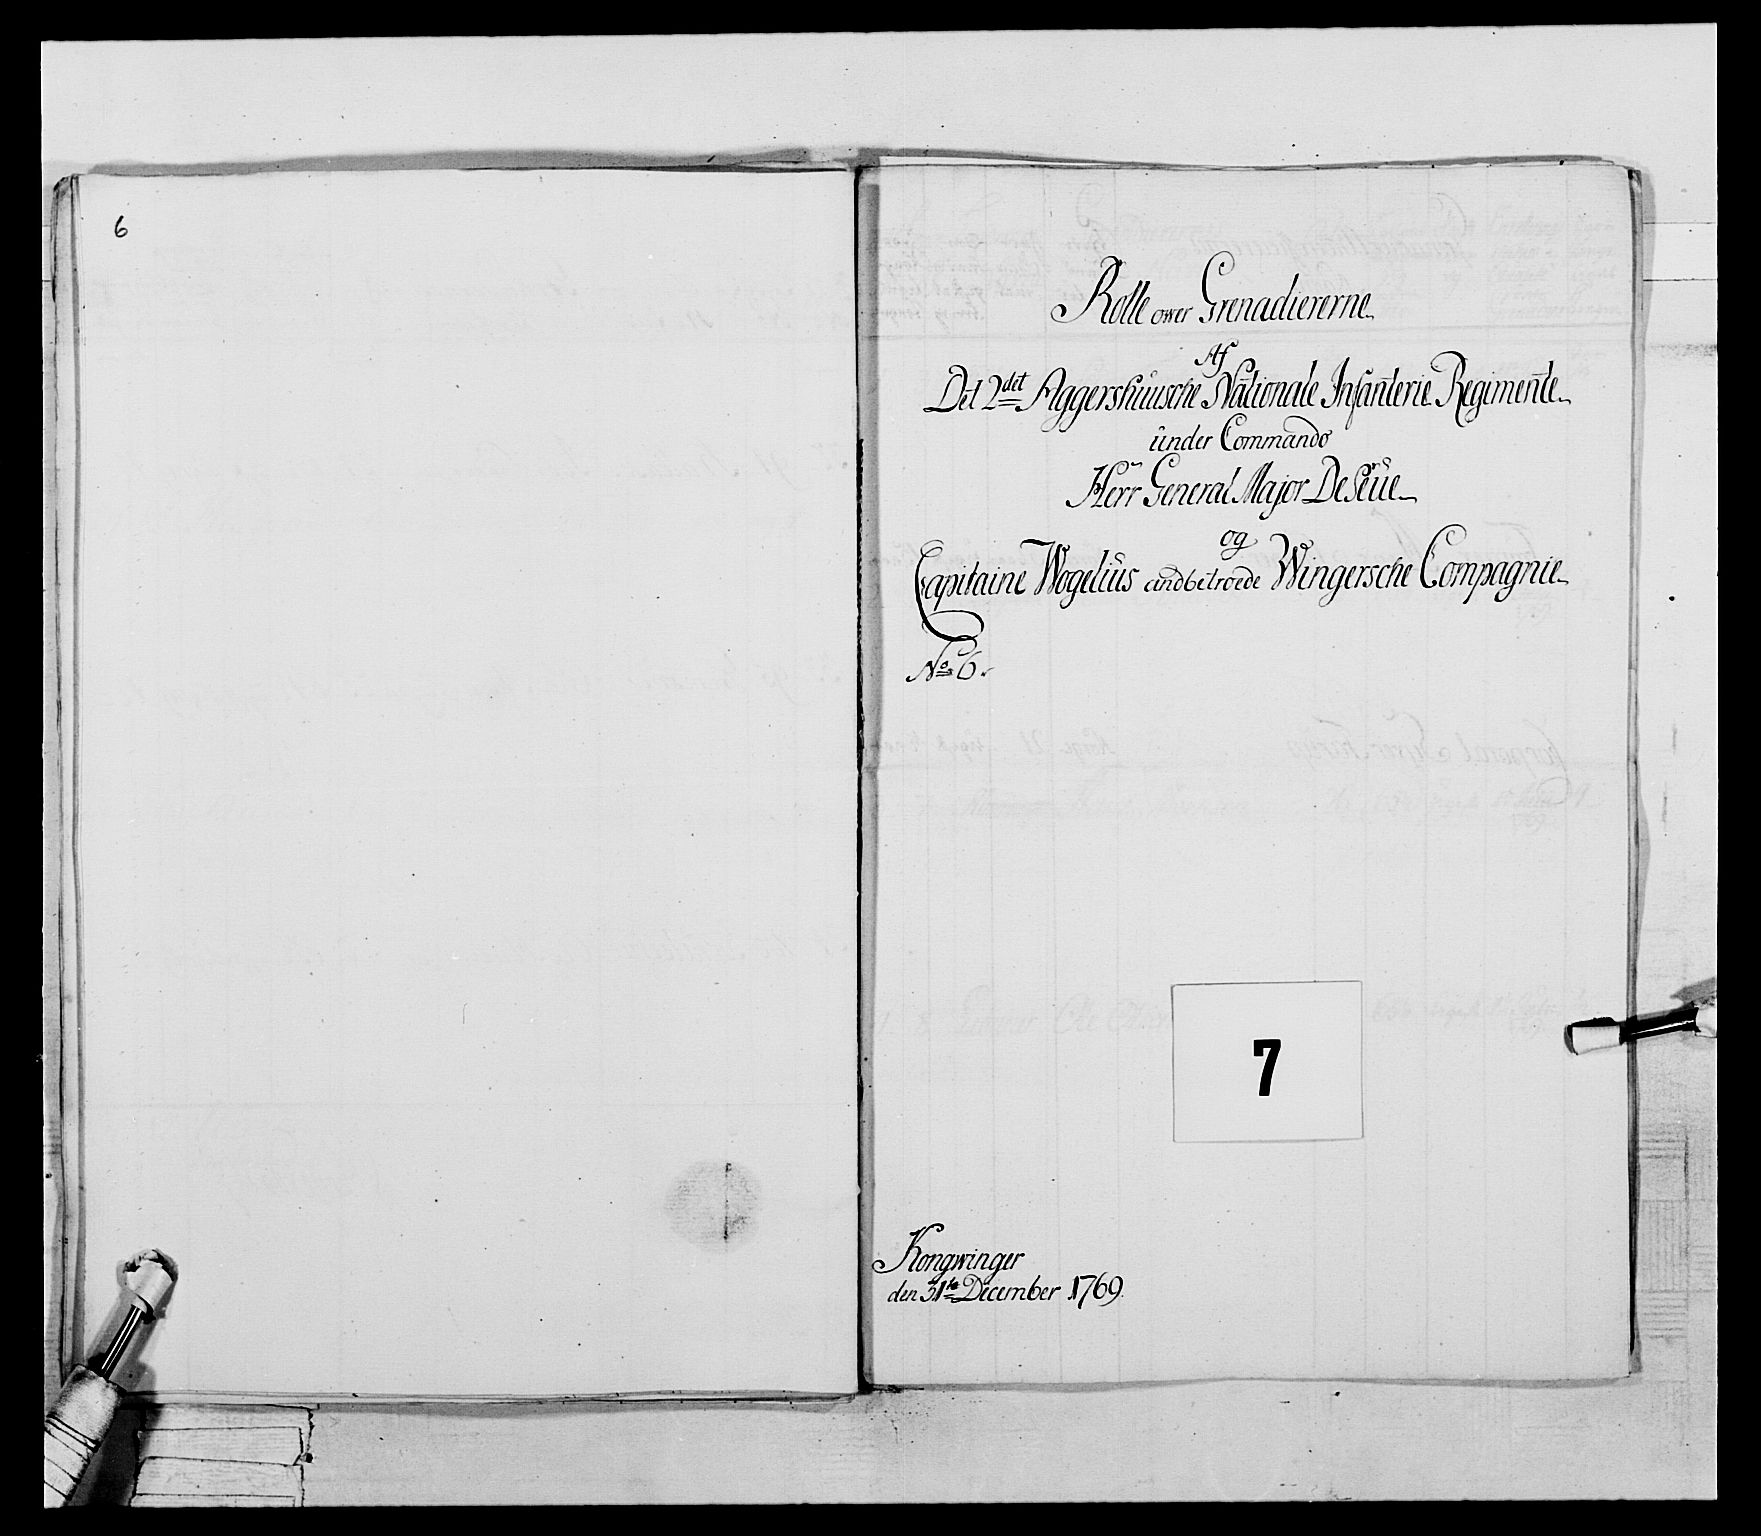 6
Rolle ower Grenadiererne
Af
Det 2det Aggershuusche Nationale Infanterie Regimente
ünder Commando
Herr General Major De Seüe
og
Capitaine Wogeliüs andbetroede Wingersche Compagnie
No 6.
7
Kongwinger
den 31te December 1769.